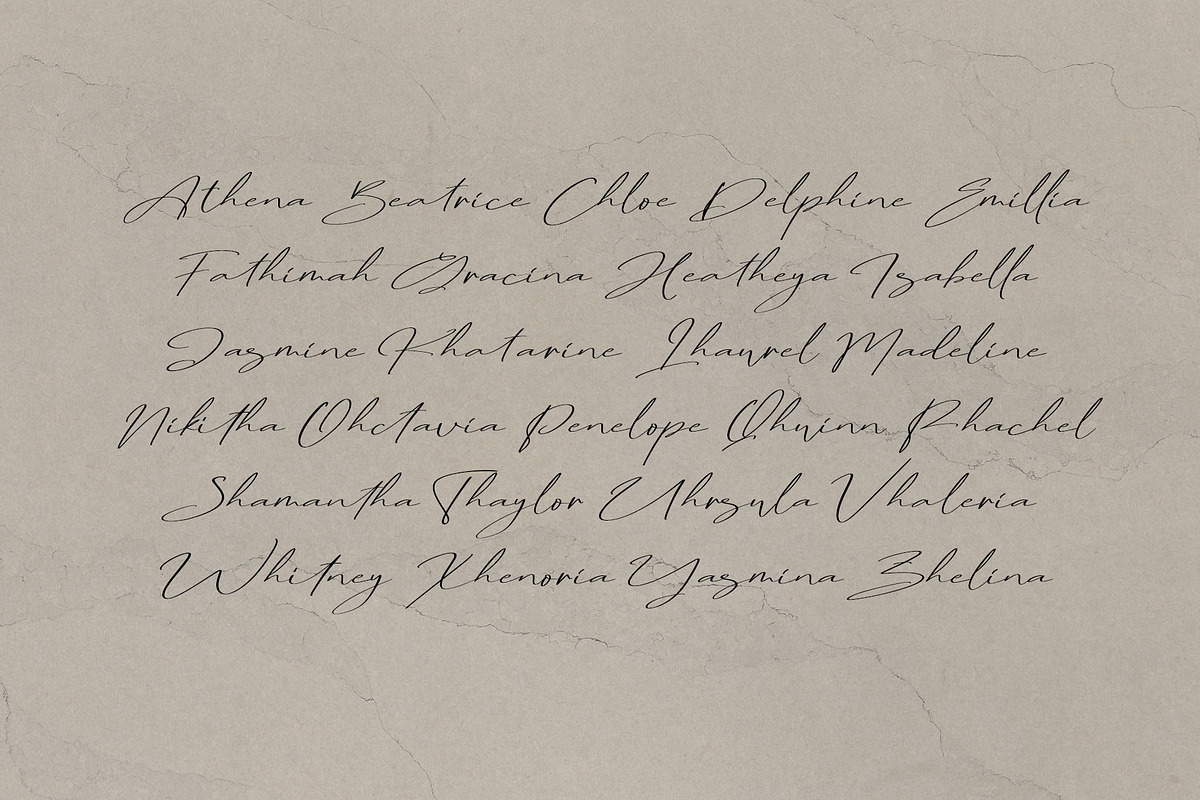 Athena Beatrice Chloe Delphine Emillia
Fathimah Gracina Heatheya Izabella
Jazmine Khatarine Lhaurel Madeline
Nikitha Ohctavia Penelope Qhuinn Rhachel
Shamantha Thaylor Uhrzula Vhaleria
Whitney Xhenoria Yazmina Zhelina